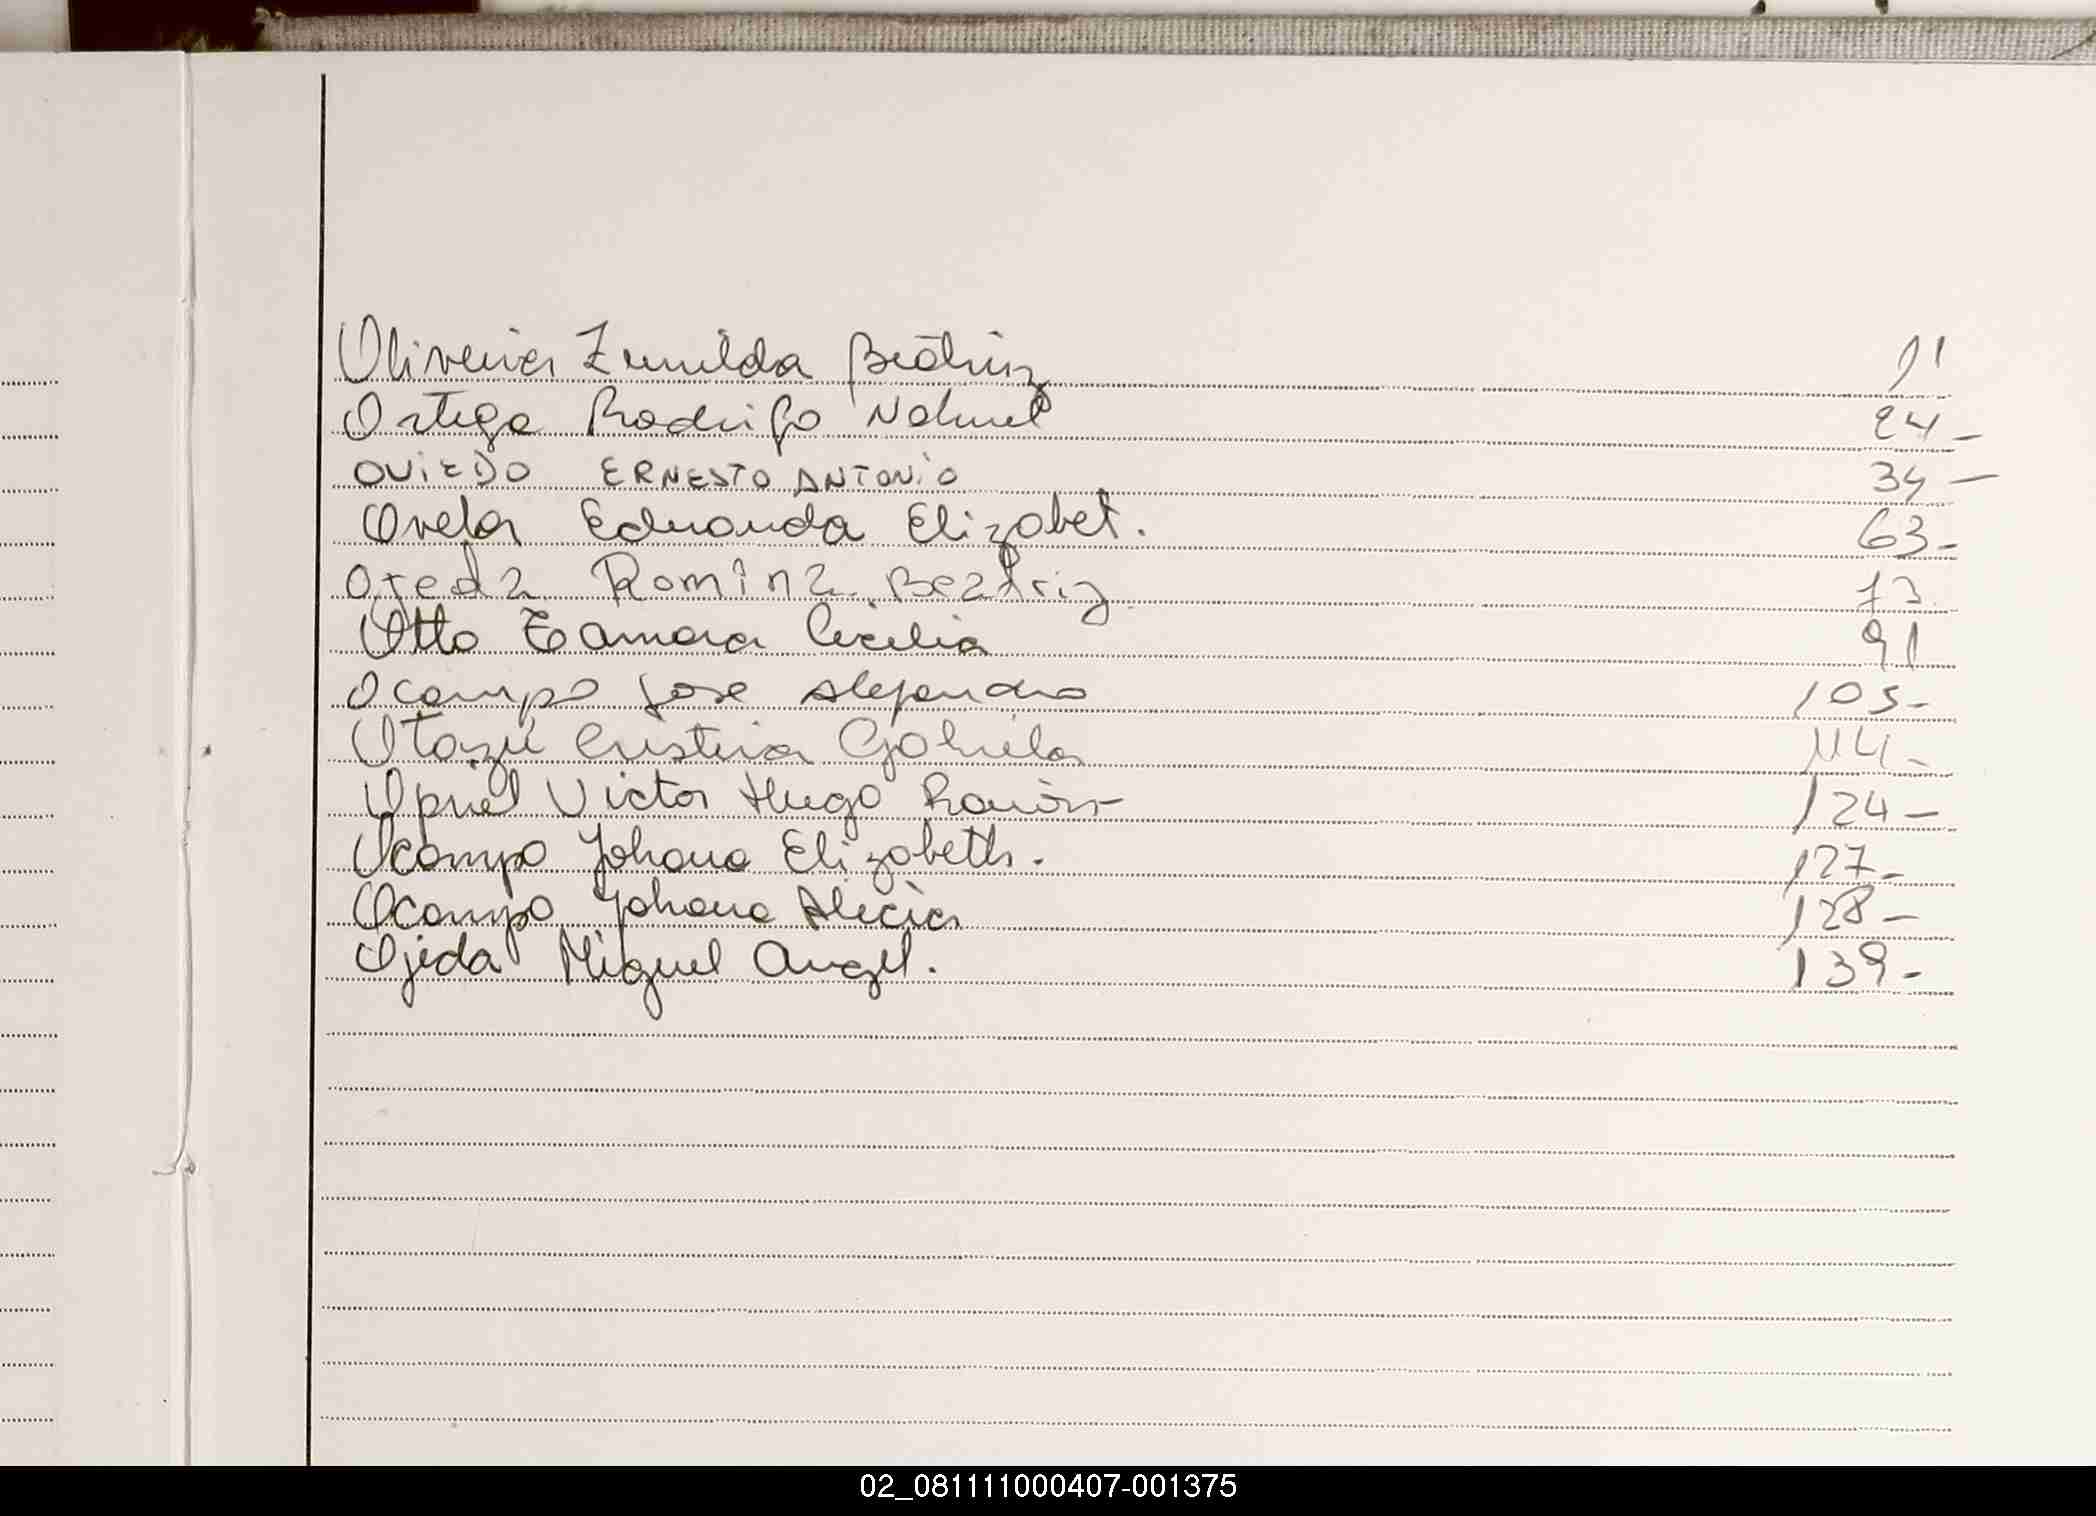 Oliveira Zunilda Beatriz 11
Ortega Rodrigo Nahuel 24-
OVIEDO ERNESTO ANTONIO 34-
Ovelar Eduarda Elizabet. 63-
Ojeda Romina Beatriz 73
Otto Tamara Cecilia 91
Ocampo Jose Alejandro 105-
Otazú Cristina Gabriela 114-
Victor Hugo Ramón 124-
Ocampo Johana Elizabeth. 127-
Ocampo Johana Alicia 128-
Ojeda Miguel Angel. 139-
02_081111000407-001375